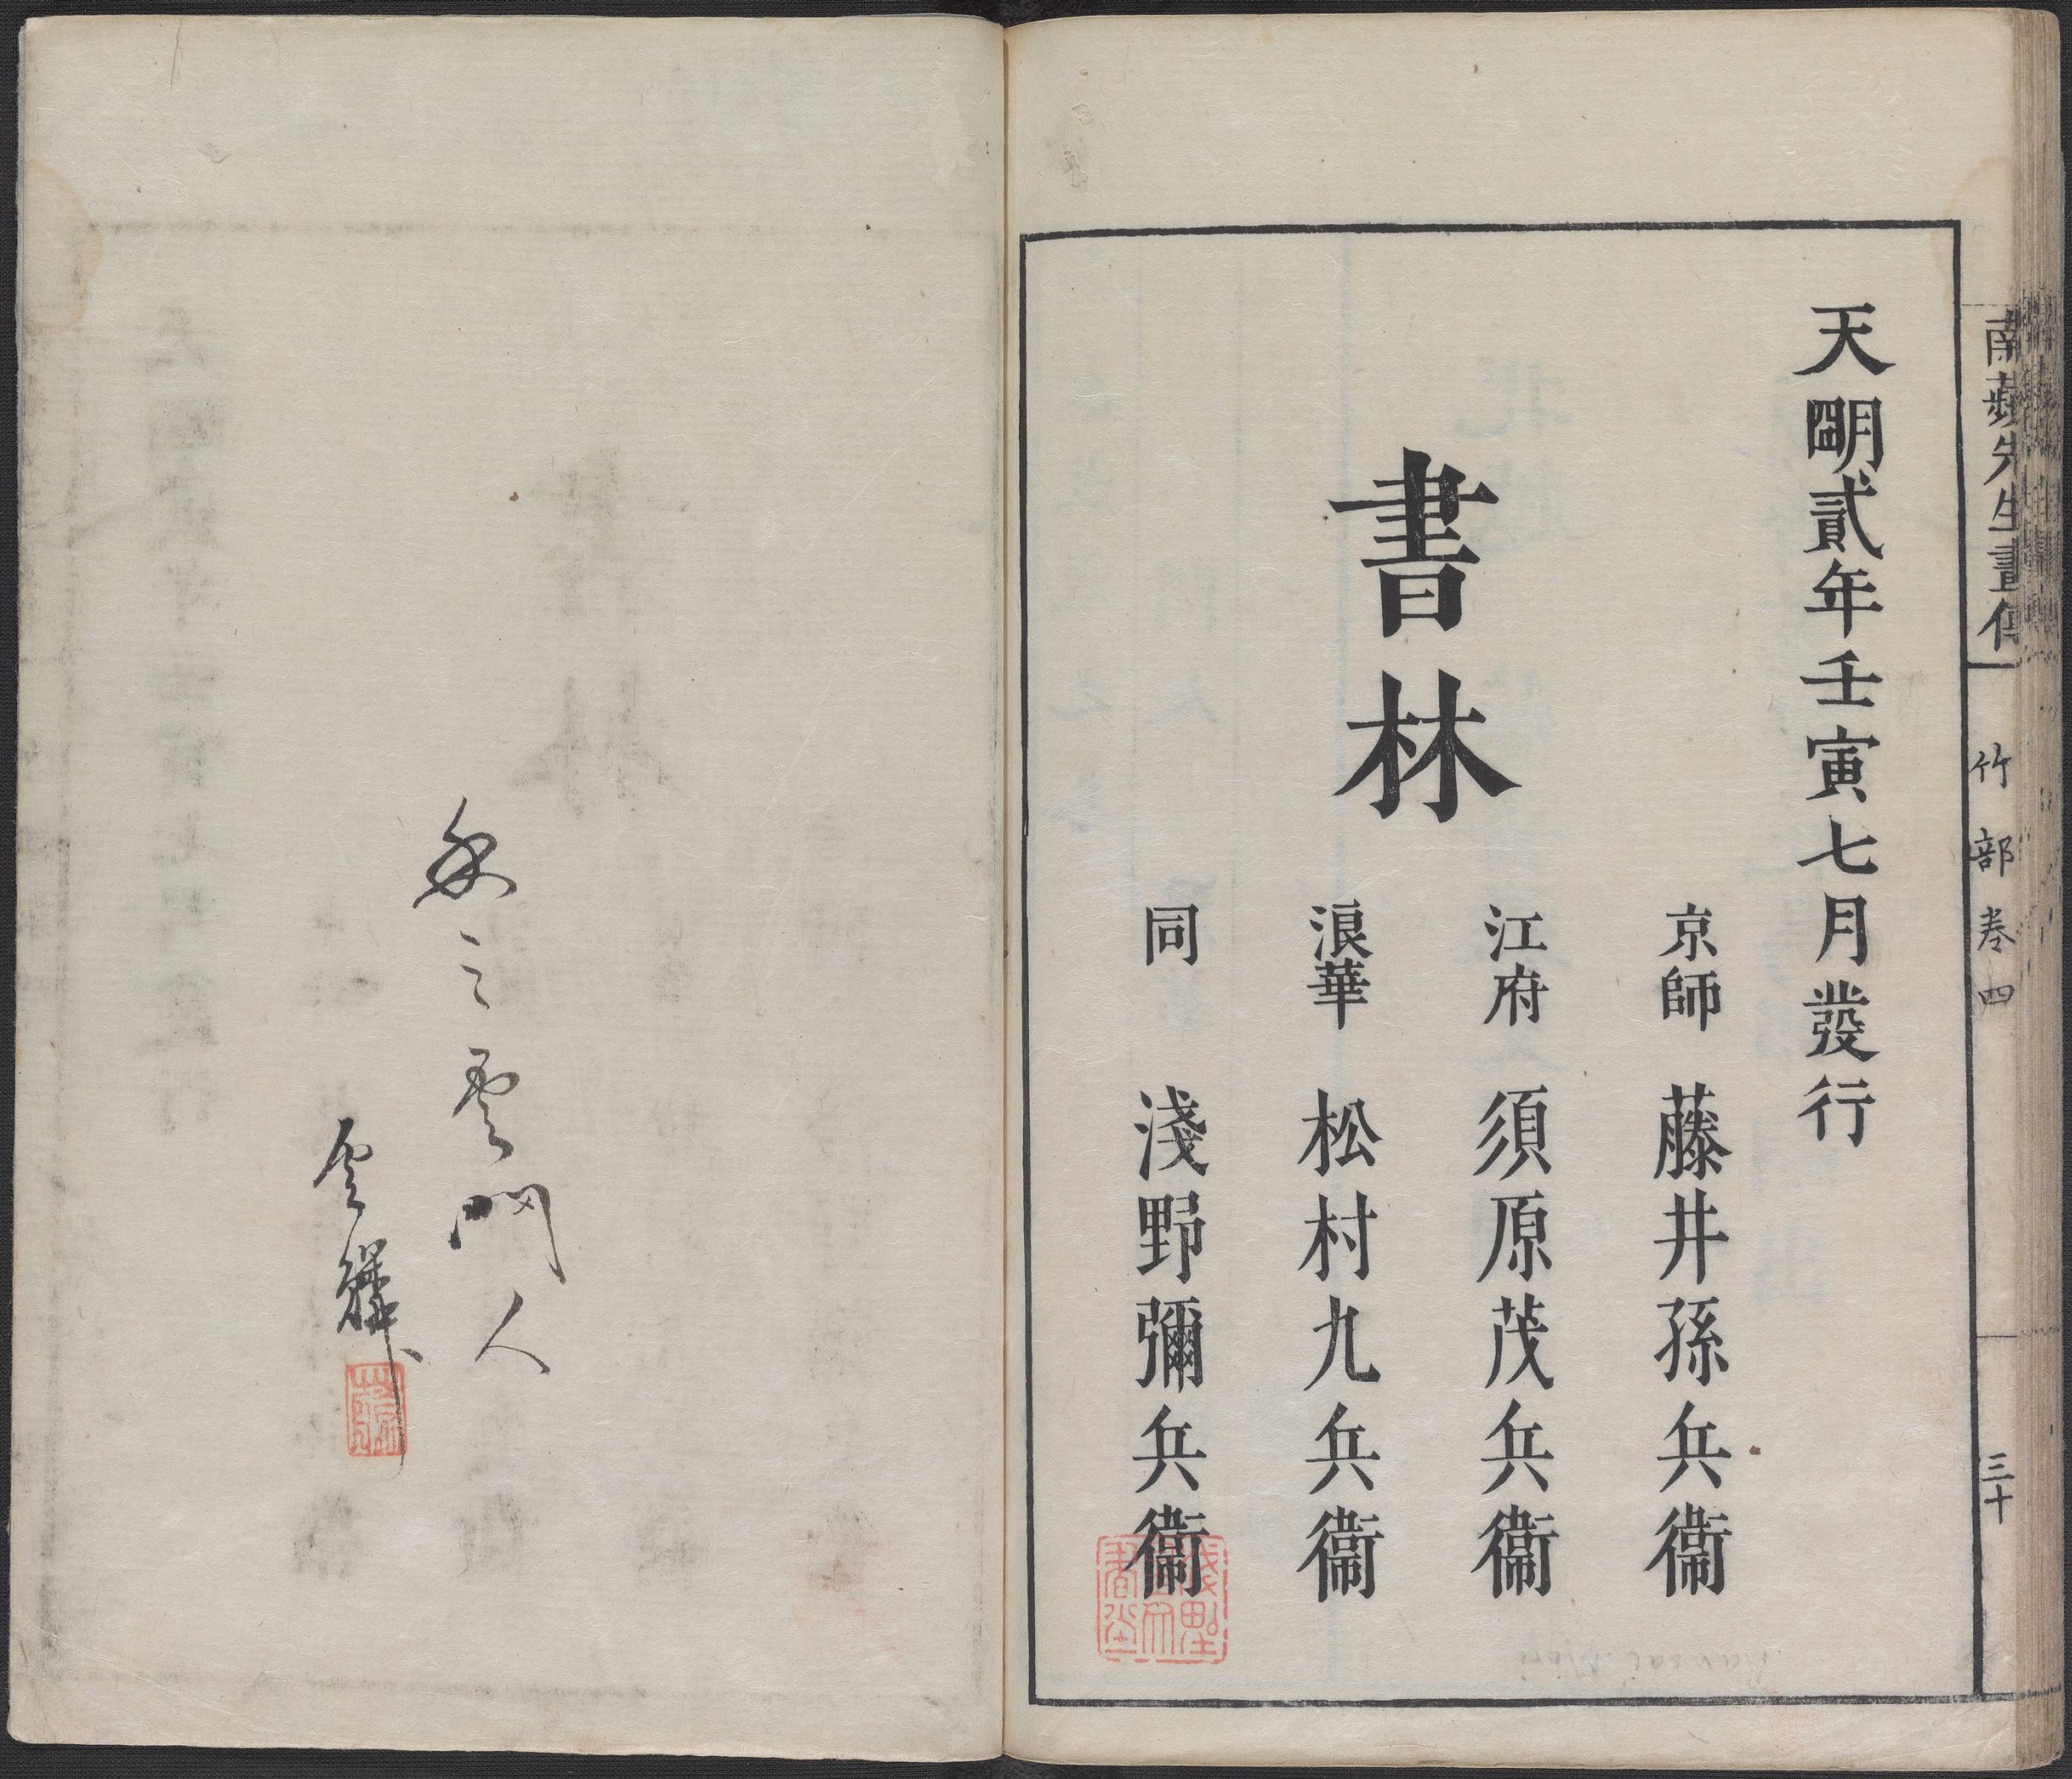 南蘋先生畫傳
竹部卷四
三十
天明貳年壬寅七月發行
書林
京師 藤井孫兵衞
江府 須原茂兵衞
浪華 松村九兵衞
同 淺野彌兵衞
雲門人